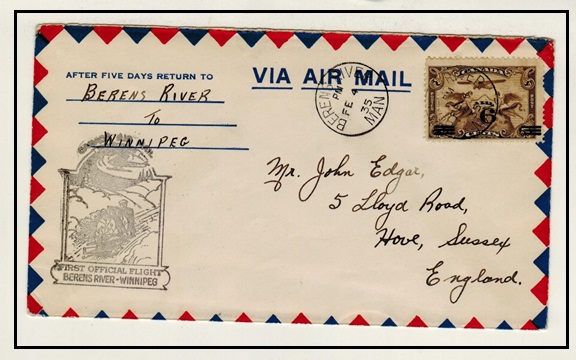 AFTER FIVE DAYS RETURN TO
BERENS RIVER
To
WINNIPEG
VIA AIR MAIL
BERENS RIVER
PM
FE 4
35
MAN
CANADA
6
Mr. John Edgar,
5 Lloyd Road,
Hove, Sussex
England.
FIRST OFFICIAL FLIGHT
BERENS RIVER-WINNIPEG